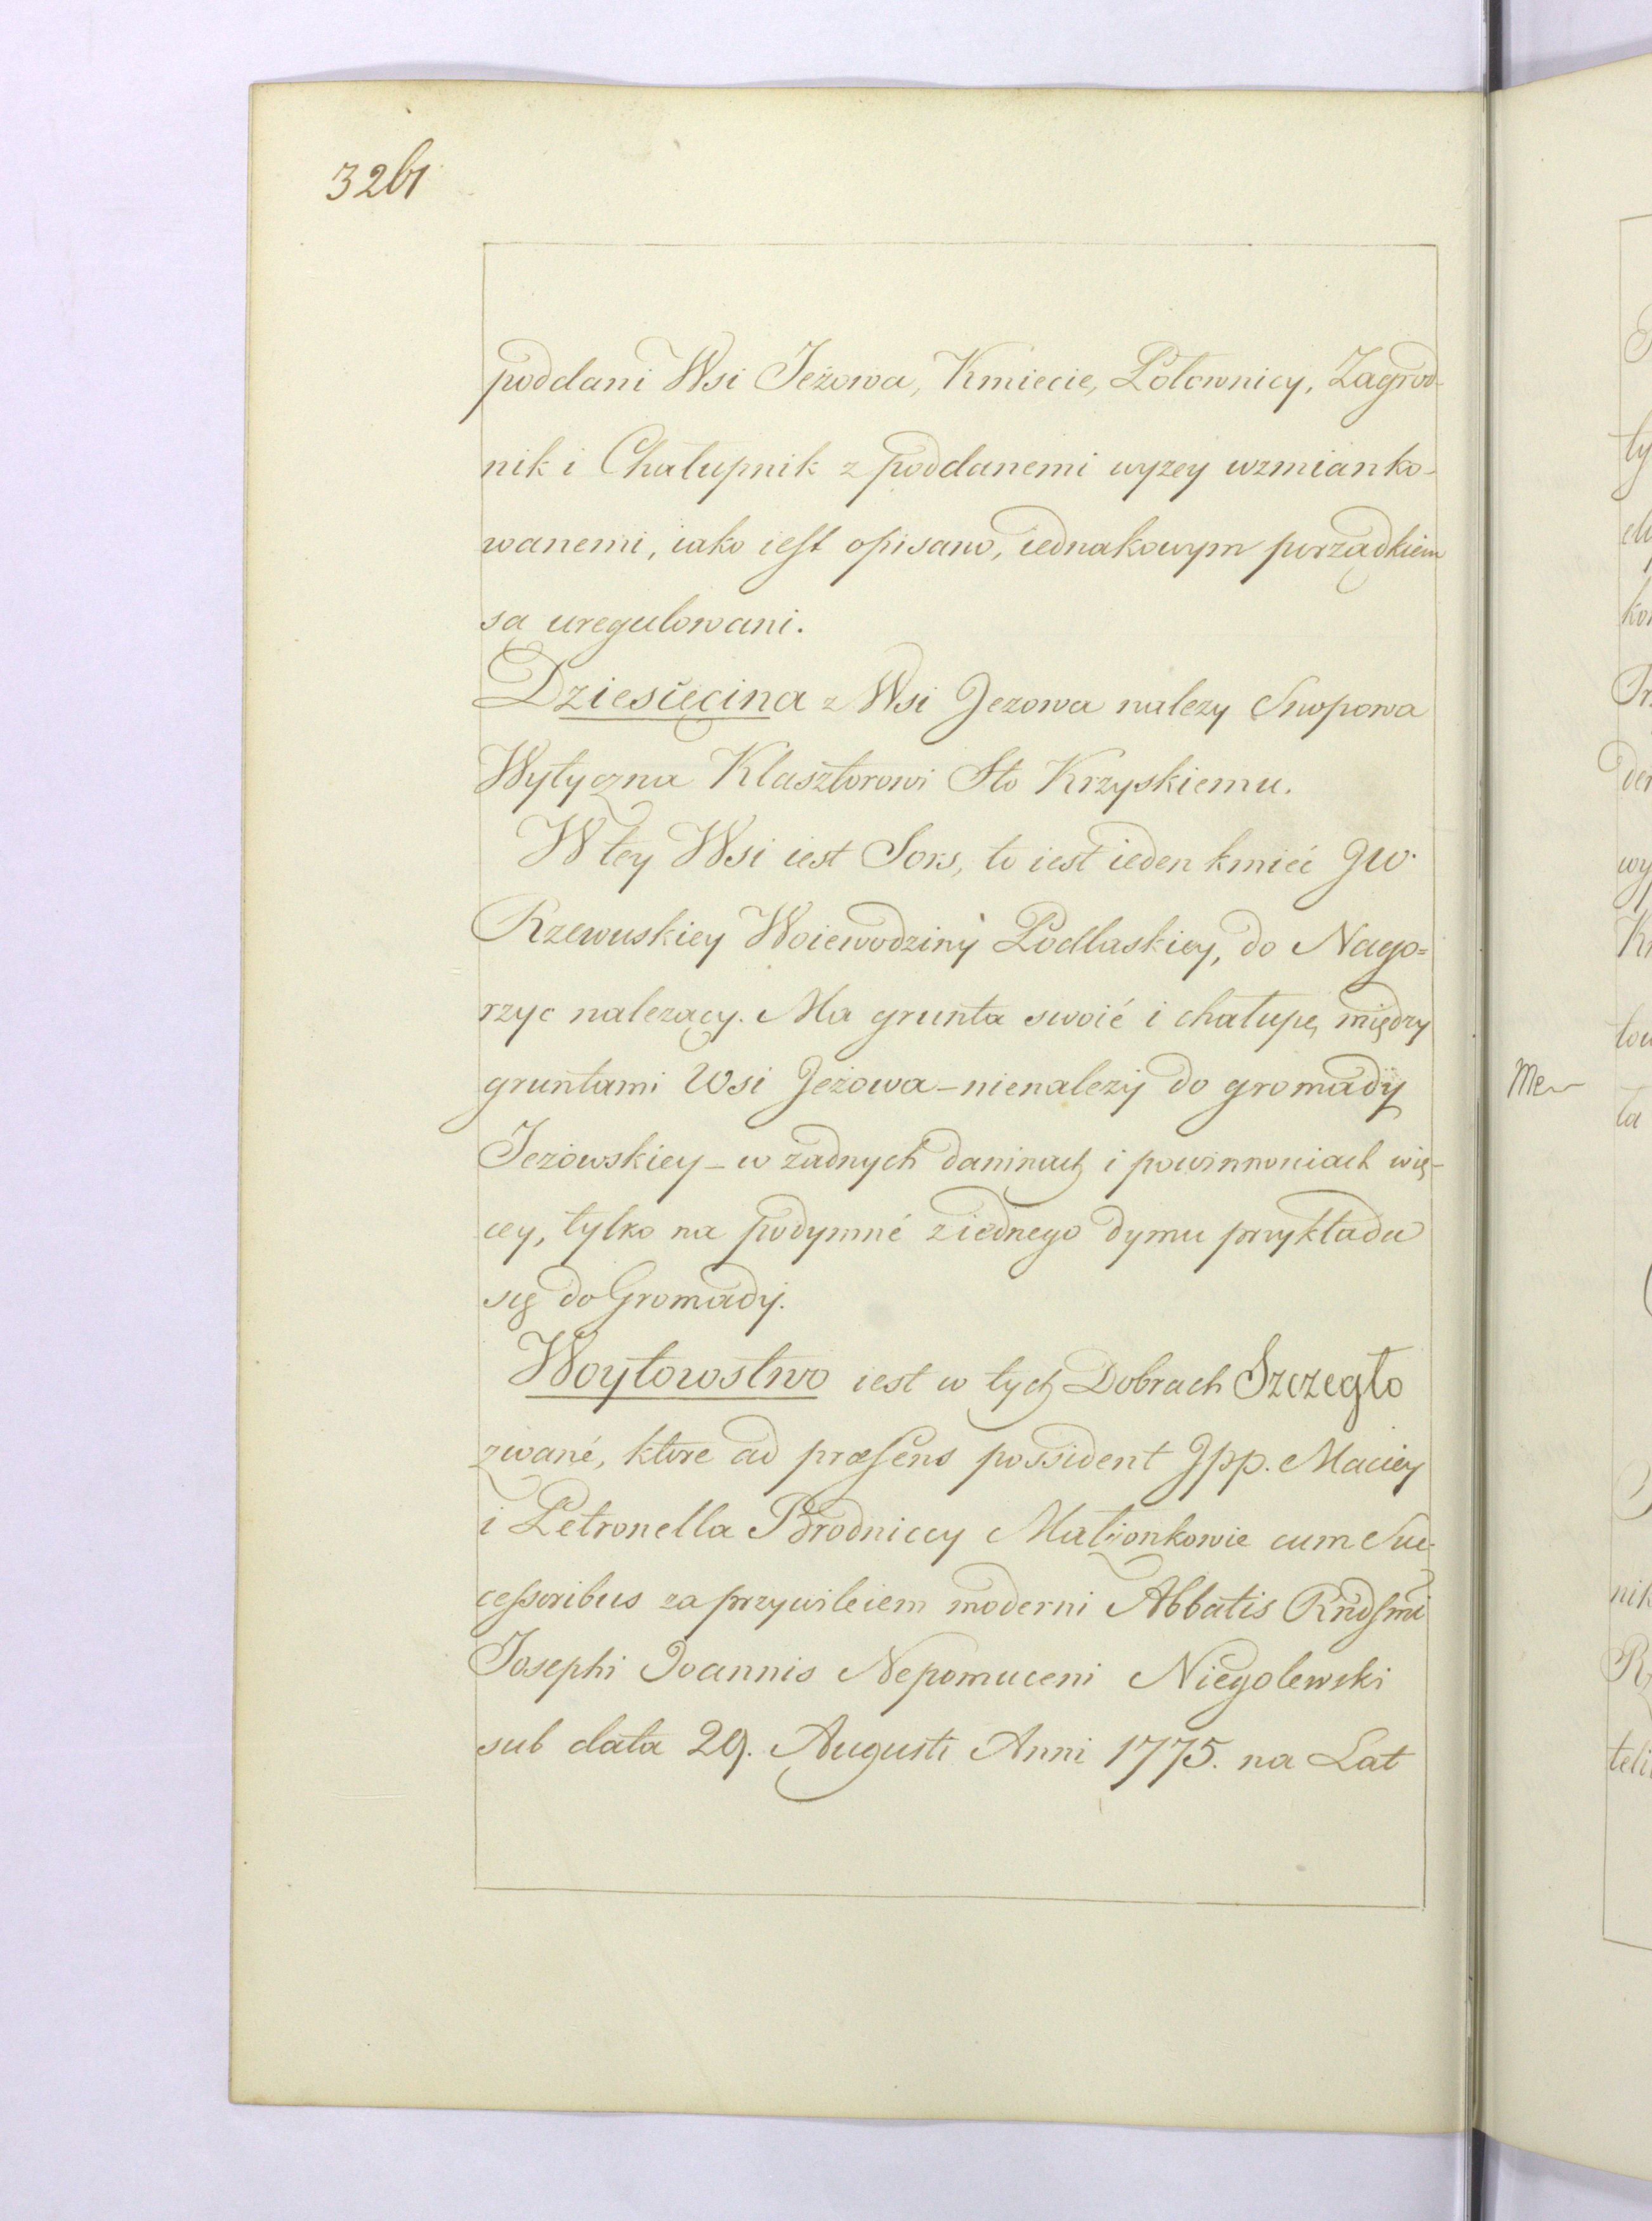 326
poddani Wsi Jeżowa, Kmiecie, Połownicy, Zagrod-
nik i Chałupnik z poddanemi wyzey wzmianko-
wanemi, iako iest opisano, iednakowym porządkiem
są uregulowani.
Dziesięcina z Wsi Jezowa nalezy Snopowa
Wytyczna Klasztorowi Sto Krzyskiemu.
W tey Wsi iest Sors, to iest ieden kmieć JW.
Rzewuskiey Woiewodziny Podlaskiey, do Nago=
rzyc nalezący. Ma grunta swoié i chałupę między
gruntami Wsi Jeżowa - nienalezy do gromady
Jeżowskiey - w zadnych daninach i powinnoniach wię-
cey, tylko na podymné z iednego dymu przykłada
się do Gromady.
Woytowstwo iest w tych Dobrach Szczegło
zwané, ktore ad præsens possident Jpp. Maciey
i Petronella Brodniccy Małżonkowie cum Suc-
cessoribus za przywileiem moderni Abbatis Rndsmi
Josephi Joannis Nepomuceni Niegolewski
sub data 29. Augusti Anni 1775. na Lat